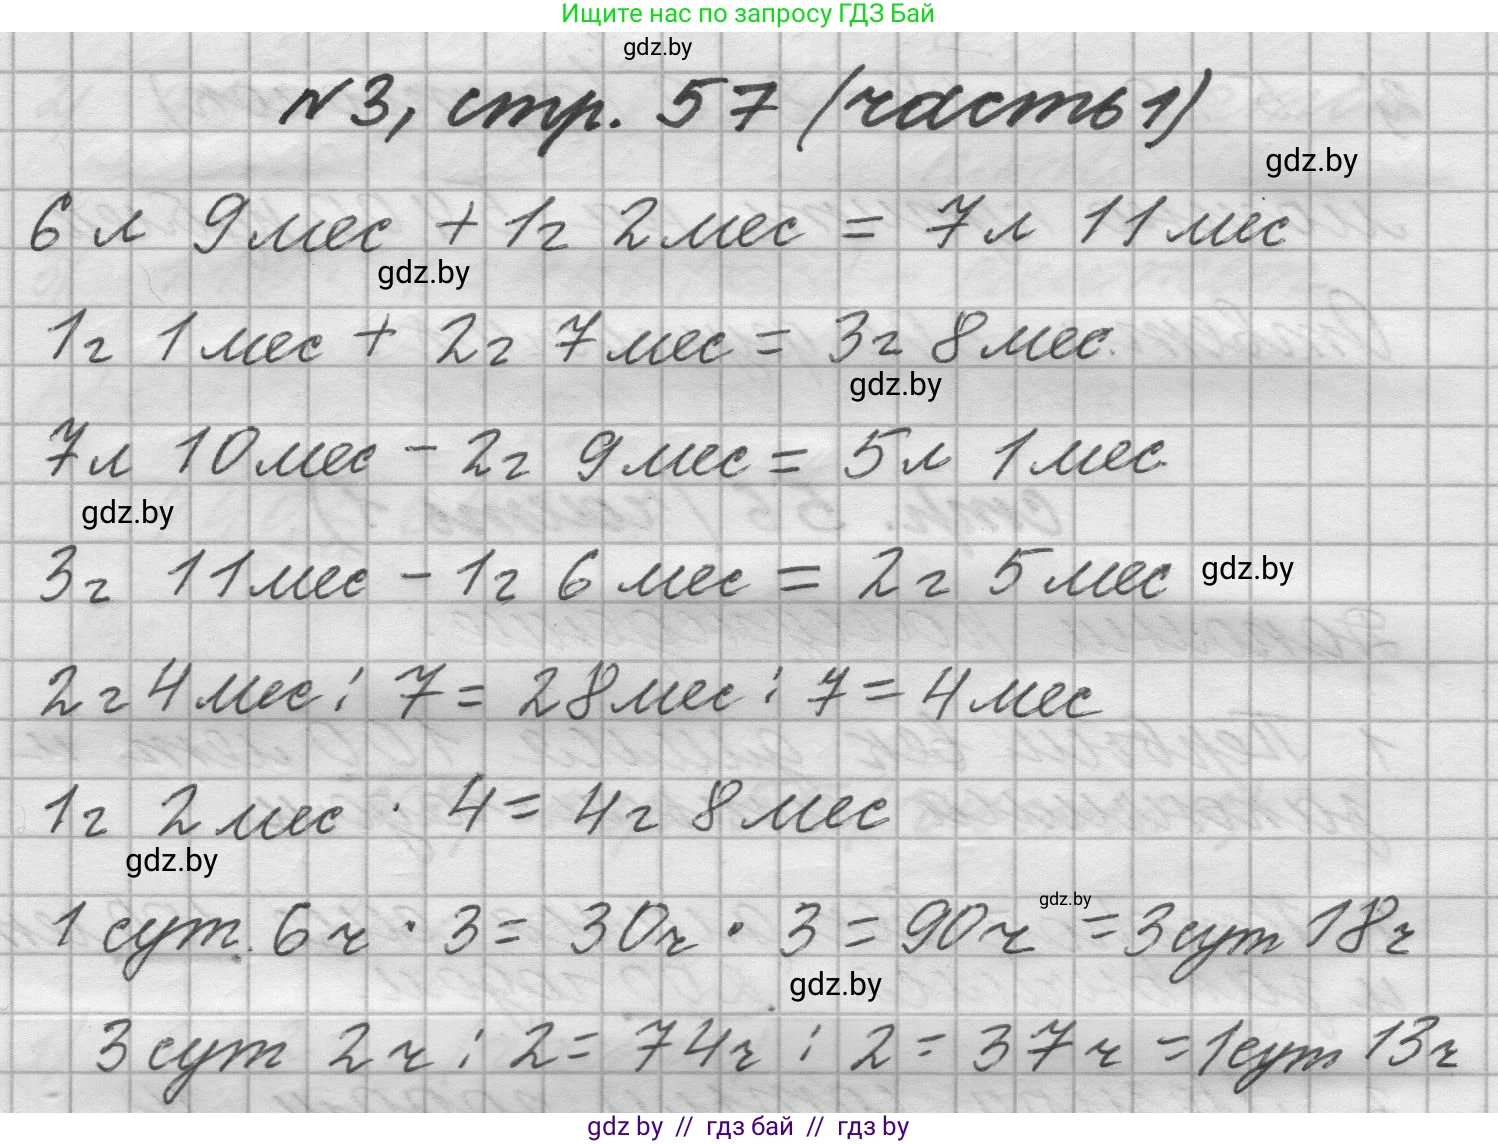 Ищите нас по запросу ГДЗ Бай
gdz.by
№3, стр. 57 (часть 1)
gdz.by
6 л 9 мес + 1 г 2 мес = 7 л 11 мес
gdz.by
1 г 1 мес + 2 г 7 мес = 3 г 8 мес.
gdz.by
7 л 10 мес - 2 г 9 мес = 5 л 1 мес.
gdz.by
3 г 11 мес - 1 г 6 мес = 2 г 5 мес
gdz.by
2 г 4 мес : 7 = 28 мес : 7 = 4 мес
1 г 2 мес · 4 = 4 г 8 мес
gdz.by
gdz.by
1 сут. 6 ч · 3 = 30 ч · 3 = 90 ч = 3 сут 18 ч
gdz.by
3 сут 2 ч : 2 = 74 ч : 2 = 37 ч = 1 сут 13 ч
gdz.by // гдз бай // гдз by